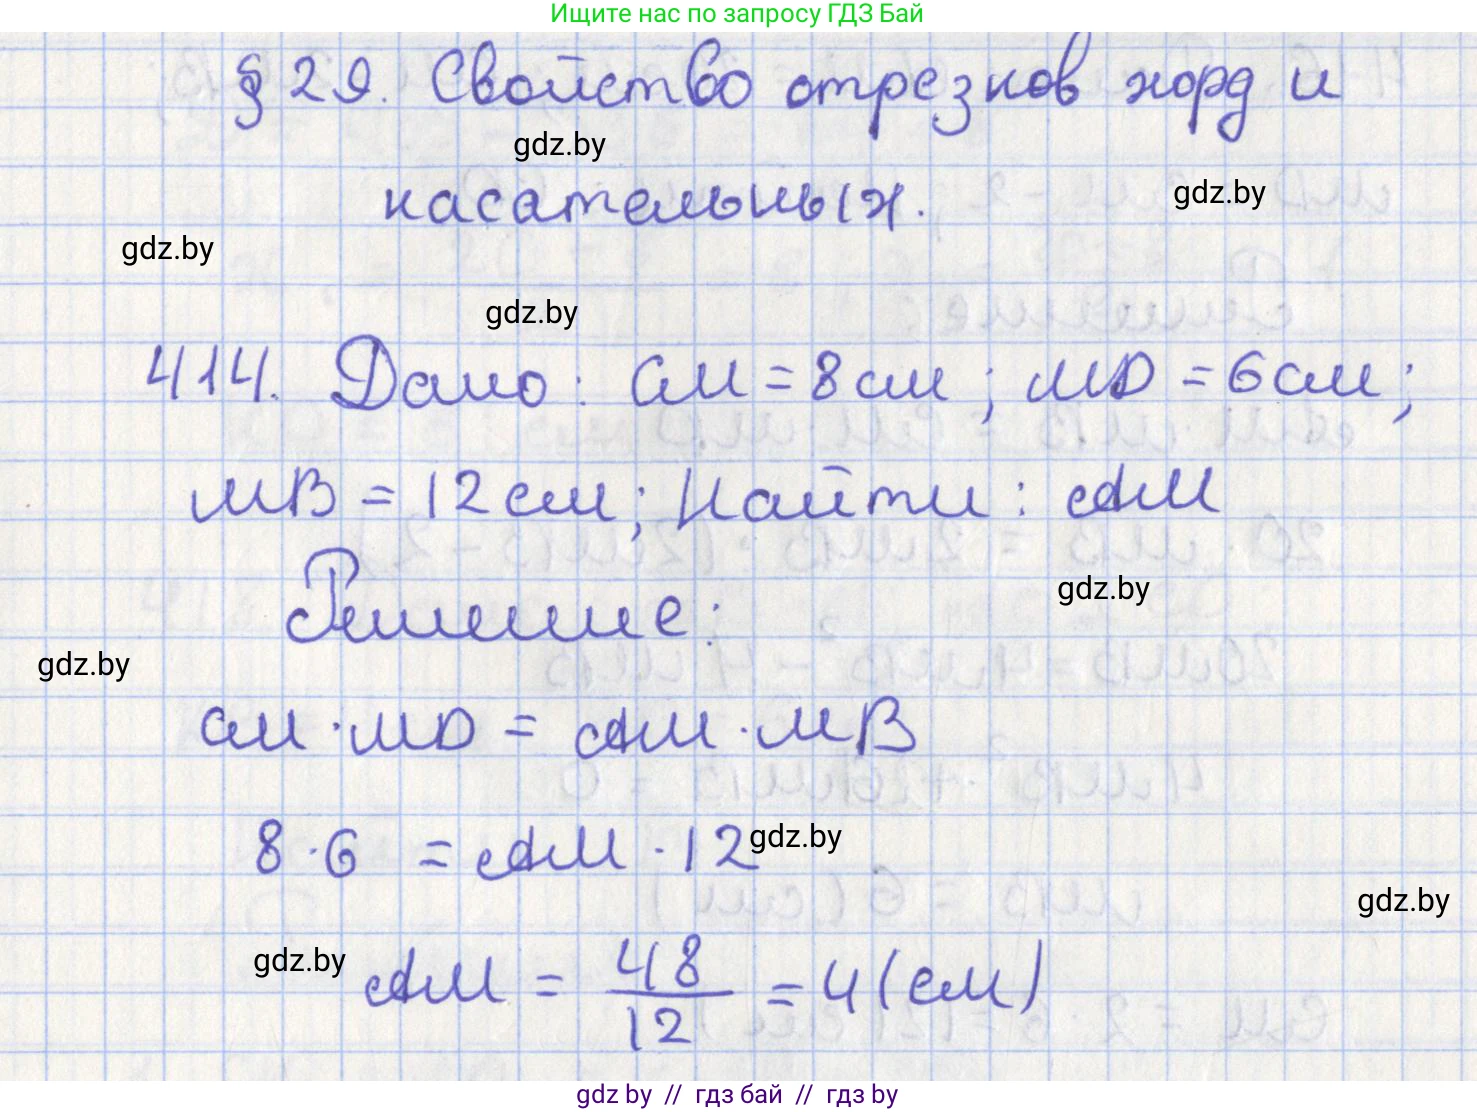 Ищите нас по запросу ГДЗ Бай
§ 29. Свойство отрезков хорд и
gdz.by
касательных.
gdz.by
gdz.by
gdz.by
414. Дано: CM = 8 см; MD = 6 см;
MB = 12 см; Найти: AM
Решение:
gdz.by
gdz.by
CM · MD = AM · MB
8 · 6 = AM · 12
gdz.by
gdz.by
gdz.by
AM = 48/12 = 4 (см)
gdz by // гдз бай // гдз by